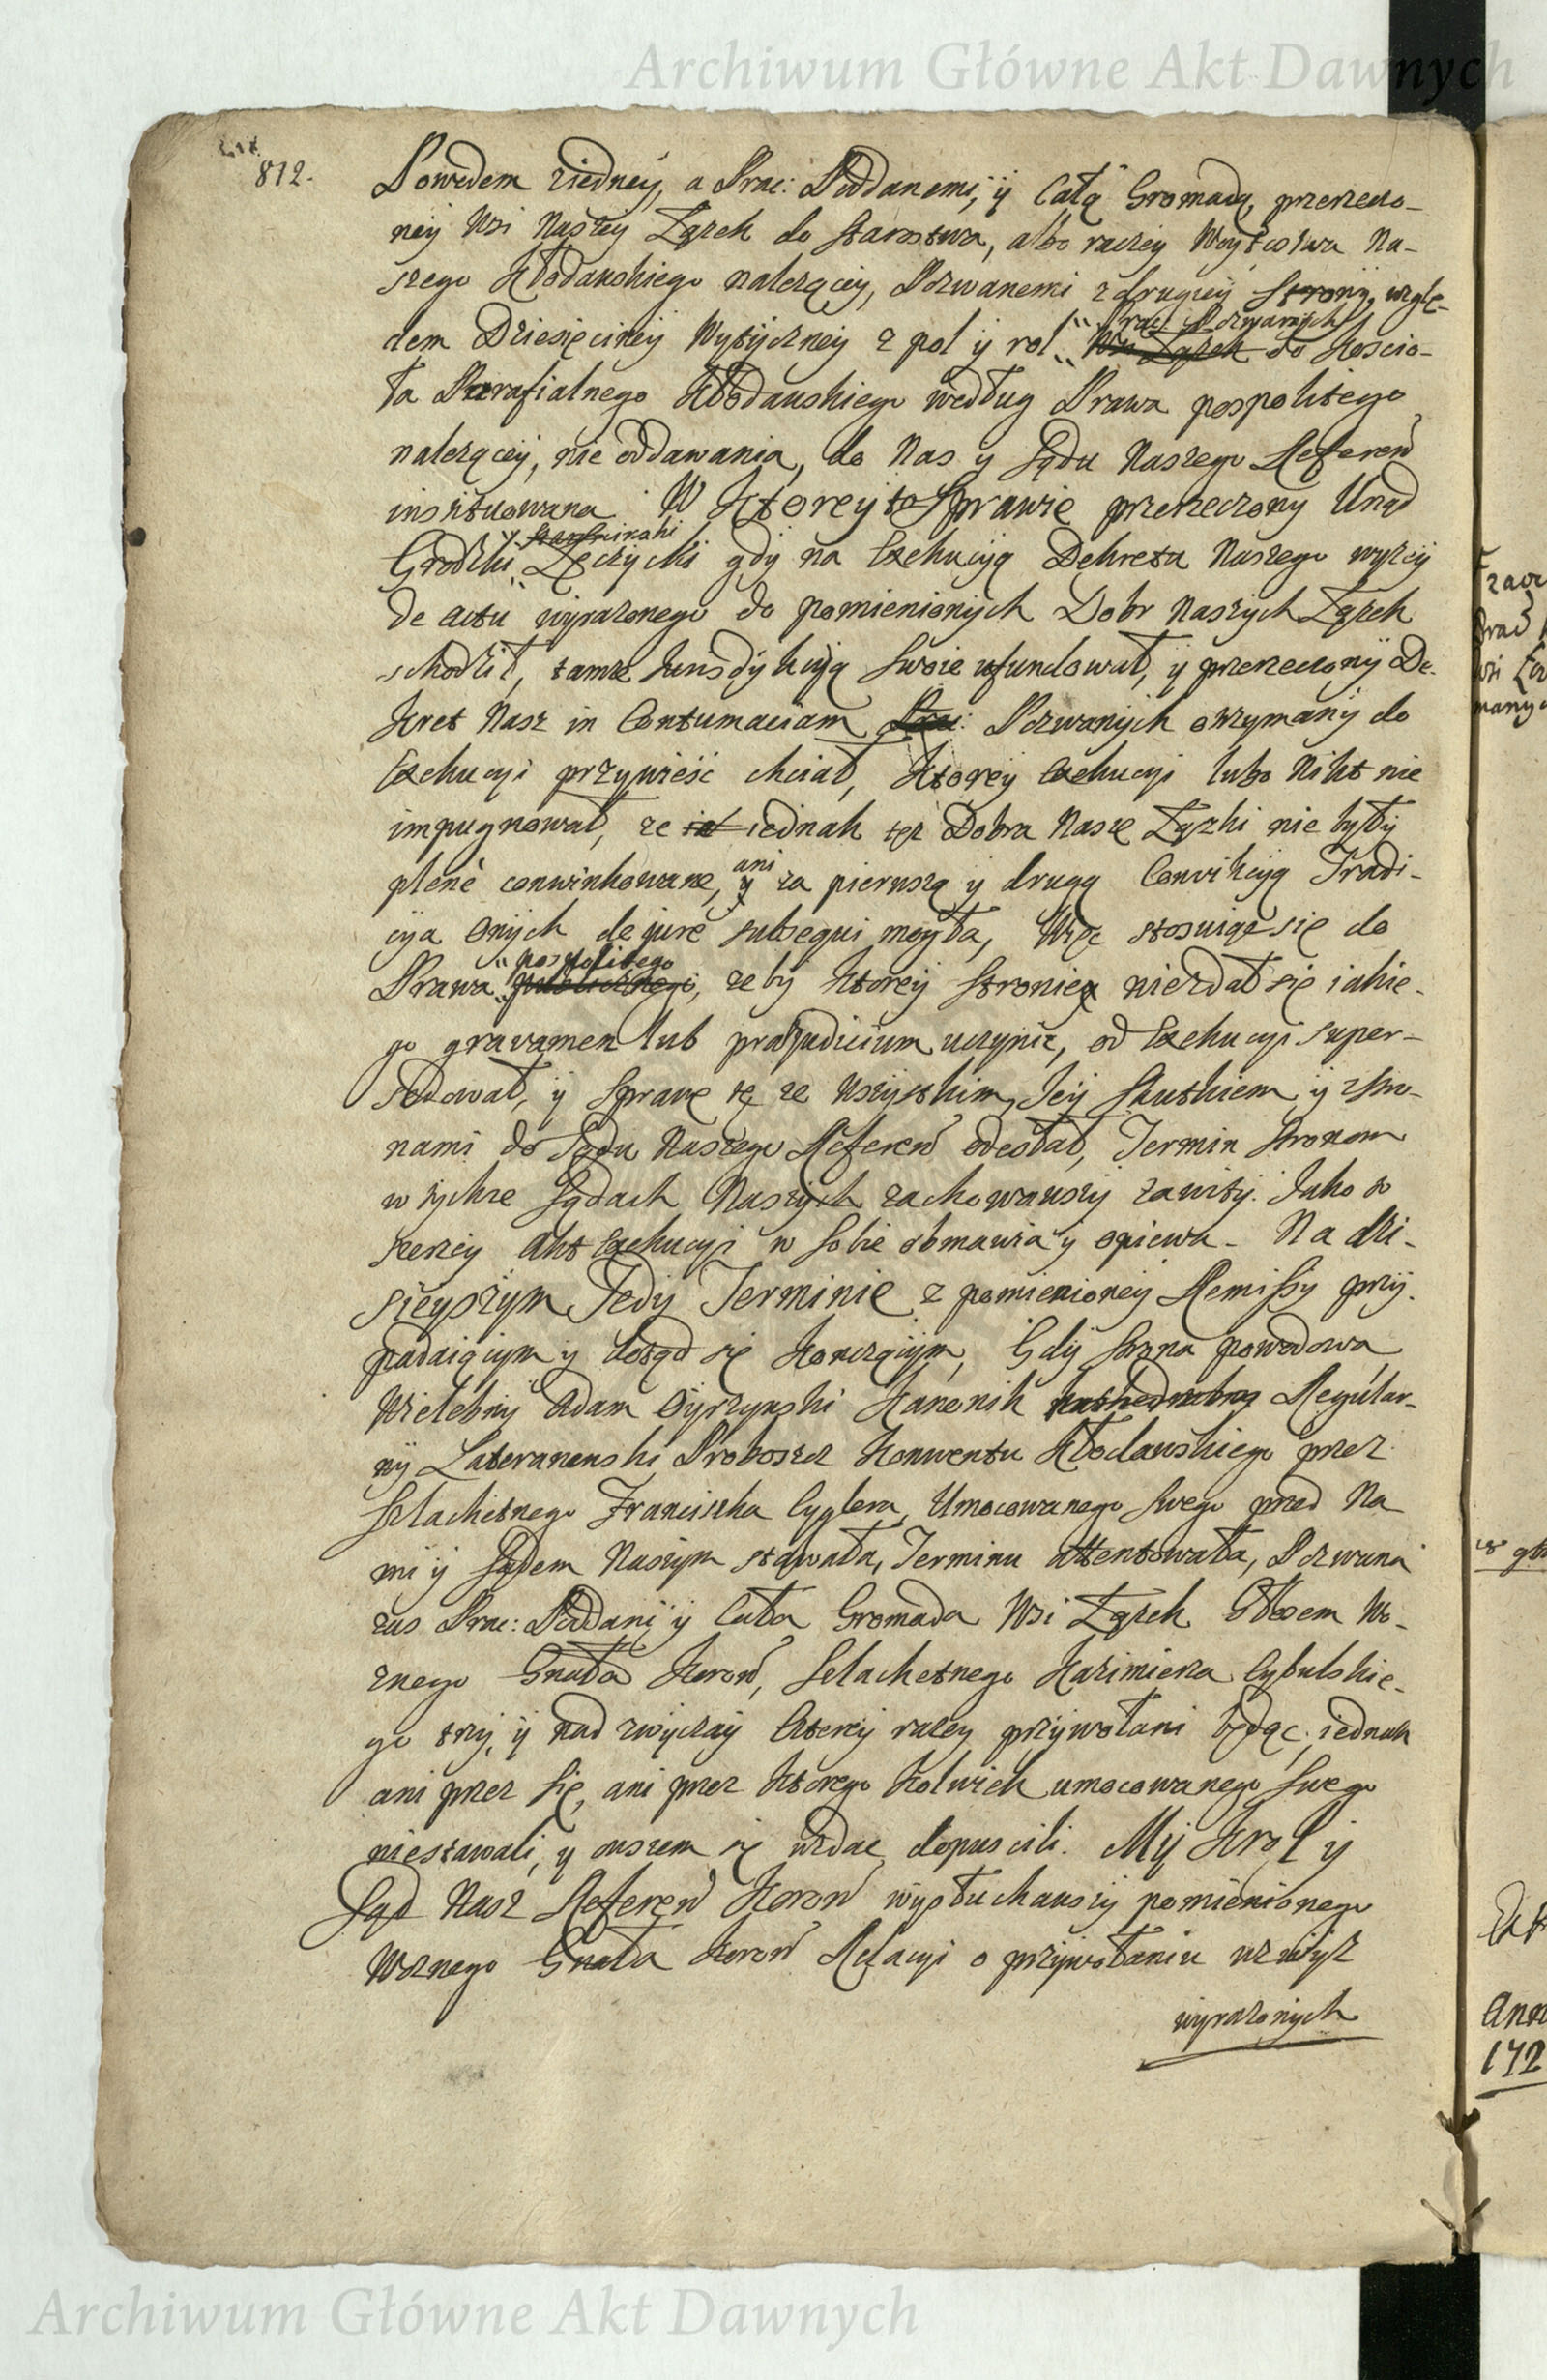 Archiwum Główne Akt Dawnych
812.
Powodem ziedney, a Prac: Poddanemi, ÿ Całą Gromadą, przerzeczo-
neÿ Wsi Naszeÿ Łązek do Starostwa, albo raczey Woytostwa Na-
szego Kłodawskiego nalezącey, Pozwanemi z drugieÿ Stronÿ, wzglę-
prac: Pozwanÿch
dem Dziesięcineÿ Wytÿczneÿ z pol ÿ rol Wsi Łązek do Koscio-
ła Parafialnego Kłodawskiego według Prawa pospolitego
naleząceÿ, nie oddawania, do Nas y Sądu Naszego Referen
instituowana. W Ktoreyto Sprawie przerzeczony Urząd
Grodzki Łęczÿcki gdÿ na Exekucÿą Dekretu Naszego wyzeÿ
de actu wÿrazonego do pomienionÿch Dobr Naszÿch Łązek
schodził, tamze Jurisdÿkcÿą Swoie ufundował, ÿ przerzeczonÿ De-
kret Nasz in Contumaciam Prac: Pozwanÿch otrzymanÿ do
Exekucyi przywieść chciał, Ktoreÿ Exekucyi lubo Nikt nie
impugnował, ze iednak tez Dobra Nasze Łązki nie bÿłÿ
ani
plenè conwinkowane, y za pierwszą y drugą Conwikcÿą Tradi-
cÿa Onÿch de jure subsequi mogła, Więc stosuiąc się do
pospolitego
Prawa publicznego, zeby Ktoreÿ Stronie niezdał się iakie-
go gravamen lub praejudicium uczynic, od Exekucyi super-
sedował, ÿ Sprawę tę ze Wszÿstkim Jeÿ Skutkiem ÿ Stro-
nami do Sądu Naszego Referen odesłał, Termin Stronom
w tÿchze Sądach Naszÿch zachowawszÿ zawitÿ. Jako to
szerzey Akt Exekucyi w Sobie obmawia y opiewa - Na dzi-
sieÿszÿm Tedÿ Terminie z pomienioneÿ Remissy przÿ-
padaiącym y dotąd się Konczącÿm, Gdÿ Strona powodowa
Wielebnÿ Adam Kanonik Regular-
nÿ Lateranenski Proboszcz Konwentu Kłodawskiego przez
Szlachetnego Franciszka Cyglera, Umocowanego Swego przed Na-
mi ÿ Sądem Naszÿm stawała, Terminu attentowała, Pozwana
zas Prac: Poddani ÿ Cała Gromada Wsi Łązek Głosem Wo-
znego Gnała Koron, Szlachetnego Kazimierza Cybulskie-
go trzÿ, ÿ nad zwÿczaÿ Czterÿ razy przÿwołani będąc, iednak
ani przez Się, ani przez Ktorego Kolwiek umocowanego Swego
niestawali, y owszem się wzdac dopuscili. Mÿ Krol ÿ
Sąd Nasz Referen Koron wÿsłuchawszÿ pomienionego
Woznego Gnała Koron Relacyi o przÿwołaniu wzwÿsz
wÿrazonÿch
Archiwum Główne Akt Dawnych